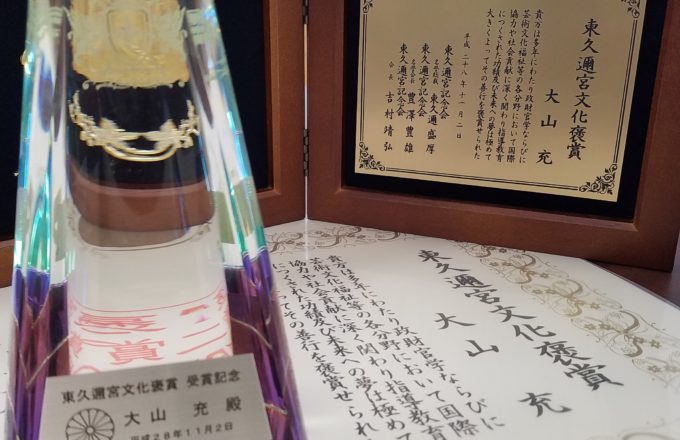 東久邇宮文化褒賞
大山 充
貴方は多年にわたり政財官学ならびに
芸術文化福祉等の各分野において国際
協力や社会貢献に深く関わり指導教育
につくされた功績及び未来への夢は極めて
大きくよってその善行を褒賞せられた
平成二十八年十一月二日
東久邇宮記念会
名誉総裁 東久邇盛厚
東久邇宮記念会
名誉会長 豊澤豊雄
東久邇宮記念会
会長 吉村靖弘
東久邇宮文化褒賞
大山 充
貴方は多年にわたり政財官学ならびに
芸術文化福祉等の各分野において国
協力や社会貢献に深く関わり指導教育
につくされた功績及び未来への夢は極めて
よってその善行を褒賞せられ
東久邇宮文化褒賞 受賞記念
大山 充 殿
平成28年11月2日